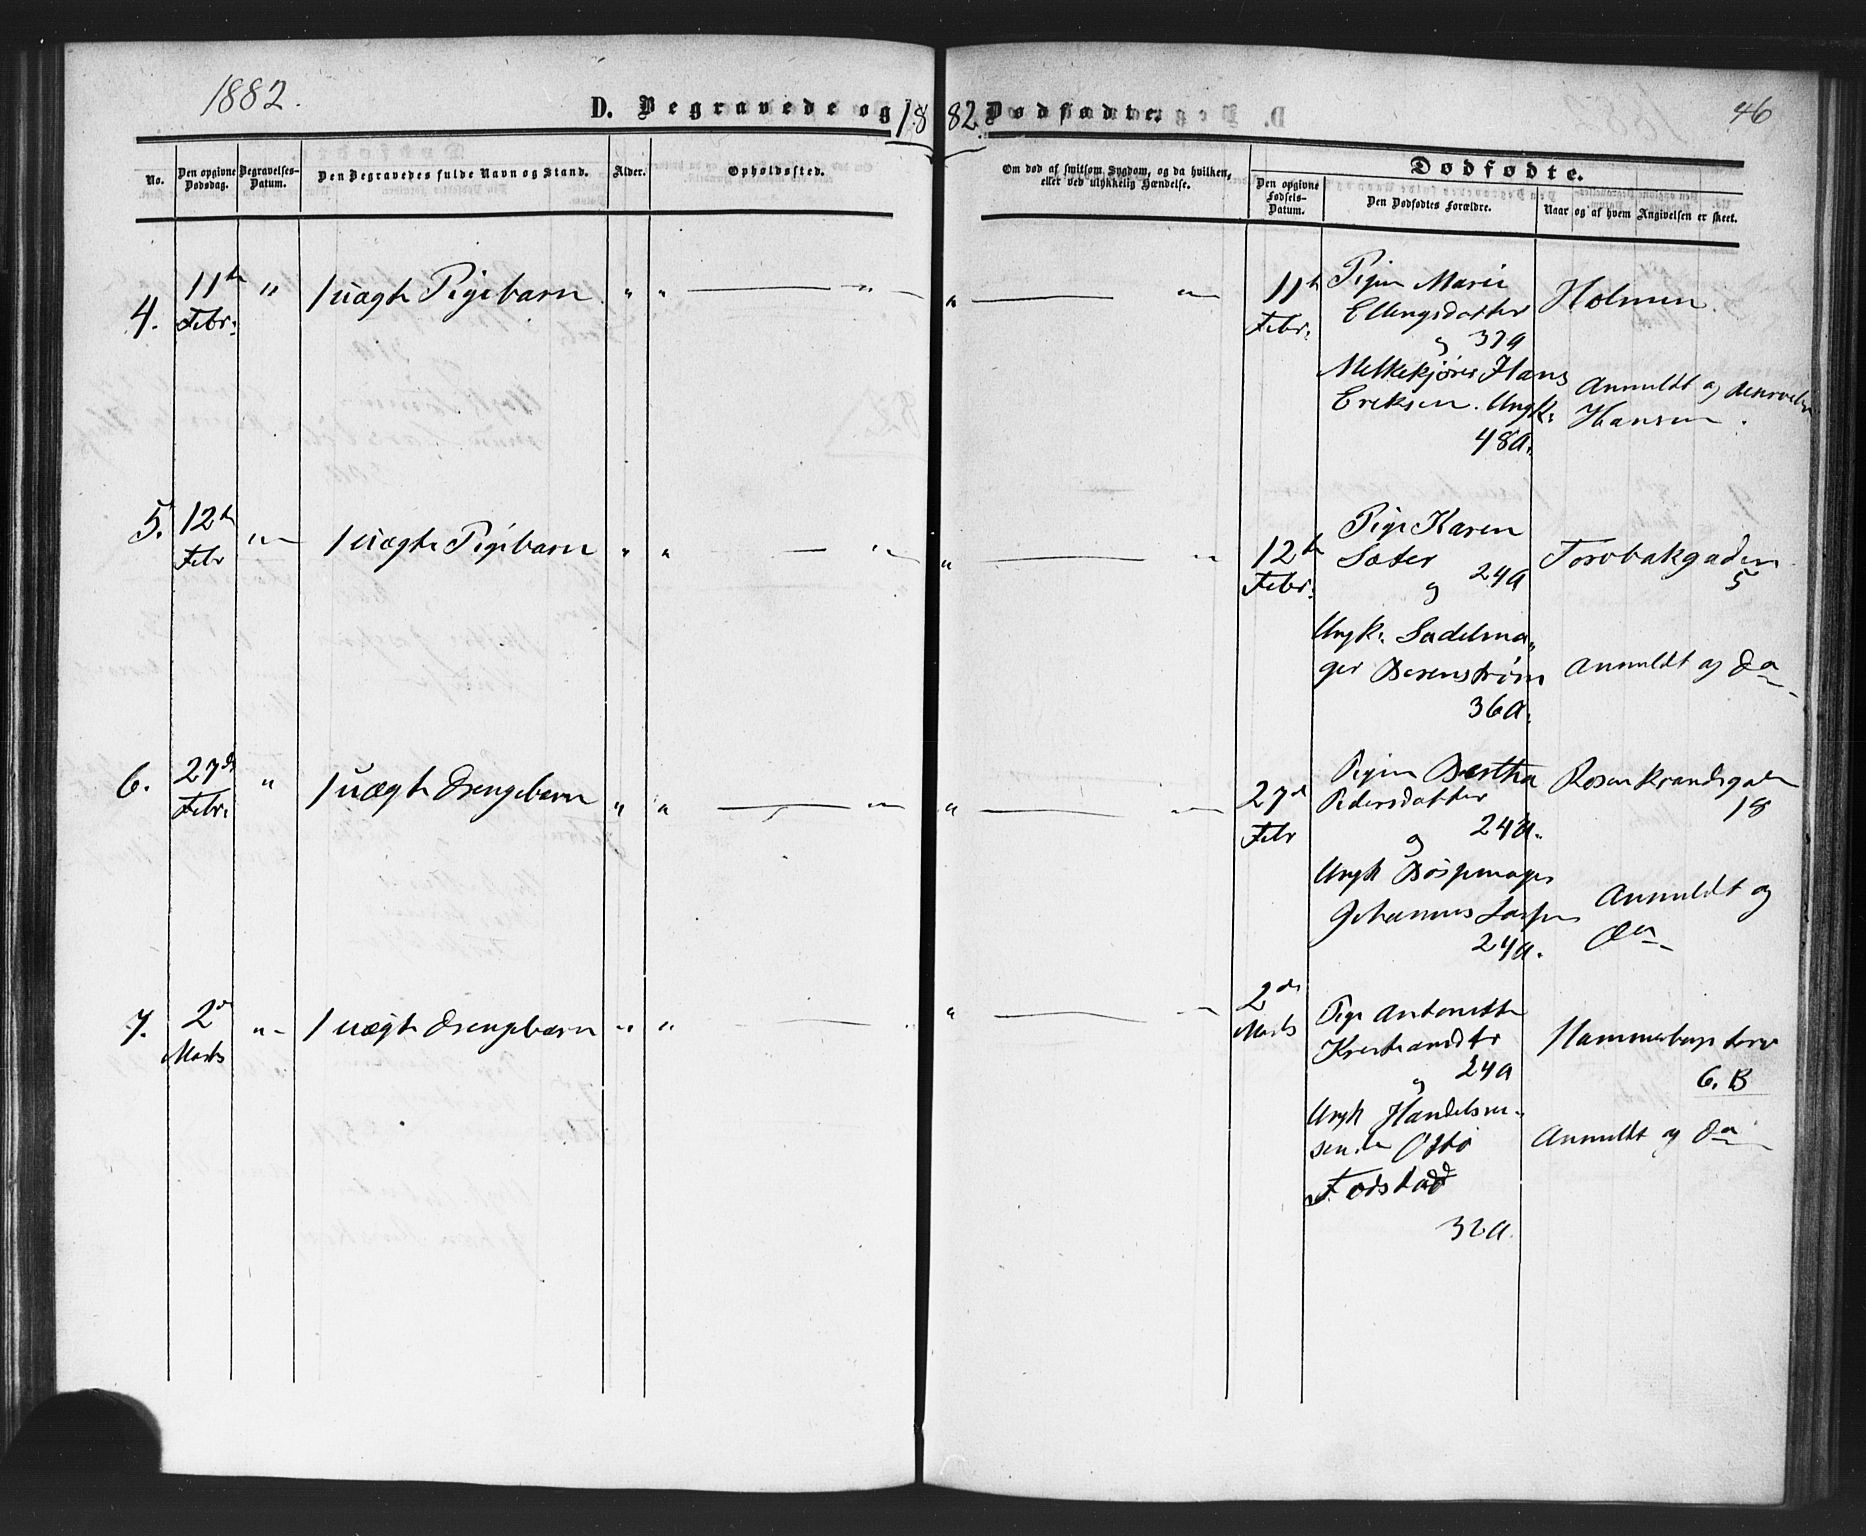 1882.
D. Begravede og
1882
Dødfødte.
46
No.
Den opgivne Dødsdag.
Begravelses-Datum.
Den Begravedes fulde Navn og Stand.
Alder.
Opholdssted.
Om død af smitsom Sygdom, og da hvilken,
eller ved ulykkelig Hændelse.
Dødfødte.
Den opgivne Fødsels-Datum.
Den Dødfødtes Forældre.
Naar og af hvem Angivelsen er skeet.
4.
11te
Febr:
"
1 uægte Pigebarn
" " " "
11te
Febr:
Pigen Marie
Ellingsdatter
og 37a
Melkekjører Hans
Eriksen. Ungk:
48a.
Holmen.
Anmeldt og
Hansen.
5.
12te
Febr
"
1 uægte Pigebarn
" " " " "
12te
Febr:
Pige Karen
Sæter
og 24a
Ungk: Sadelma„
ger Berenstrøm
36a.
Torvbakgaden
5
Anmeldt og do
6.
27de
Febr:
"
1 uægte Drengebarn
" " " " "
27de
Febr
Pigen Bertha
Pedersdatter
og 24a.
Ungk
Johannes
24a.
Rosenkrandsgaden
18
Anmeldt og
do
7.
2de
Marts
"
1 uægte Drengebarn
" " " "
2de
Marts
Pige Antonette
og 24a
Ungk Handelsrei-
sende Otto
Fodstad
32a.
Hammersborg torv
6. B
Anmeldt og do